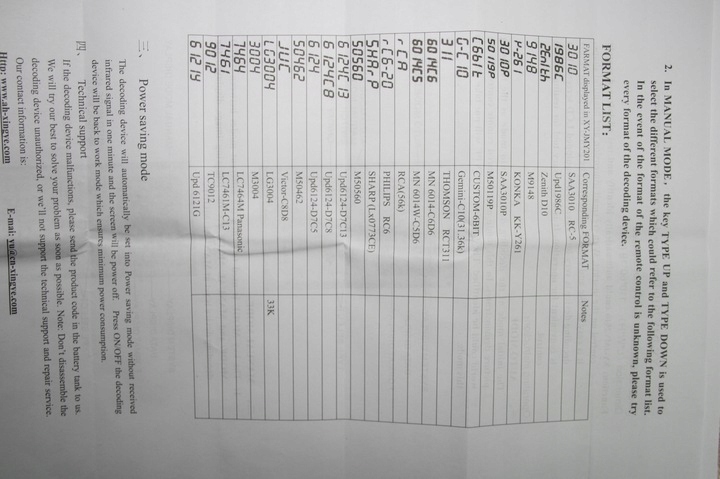 2. In MANUAL MODE, the key TYPE UP and TYPE DOWN is used to
select the different formats which could refer to the following format list.
In the event of the format of the remote control is unknown, please try
every format of the decoding device.
FORMAT LIST:
FARMAT displayed in XY-JMY201 Corresponding FORMAT Notes
3010 SAA3010 RC-5
1986C Upd1986C
2Enith Zenith D10
9148 M9148
Y-261 KONKA KK-Y261
3010P SAA3010P
50119P M50119P
C6bit CUSTOM-6BIT
G-C 10 Gemini-C10(31.36k)
311 THOMSON RCT311
6014C6 MN 6014-C6D6
6014C5 MN 6014W-C5D6
rCA RCA(56k)
rC6-20 PHILIPS RC6
SHArP SHARP (Lx0773CE)
50560 M50560
6124C13 Upd6124-D7C13
6124C8 Upd6124-D7C8
6124 Upd6124-D7C5
50462 M50462
JUC Victor-C8D8
LG3004 LG3004 33K
3004 M3004
7464 LC7464M Panasonic
7461 LC7461M-C13
9012 TC9012
612 19 Upd 6121G
三、 Power saving mode
The decoding device will automatically be set into Power saving mode without received
infrared signal in one minute and the screen will be power off. Press ON/OFF the decoding
device will be back to work mode which ensures minimum power consumption.
四、 Technical support
If the decoding device malfunctions, please send the product code in the battery tank to us.
We will try our best to solve your problem as soon as possible. Note: Don't disassemble the
decoding device unauthorized, or we'll not support the technical support and repair service.
Our contact information is:
Http: www.ah-xingye.com E-mai: yu@cn-xingye.com